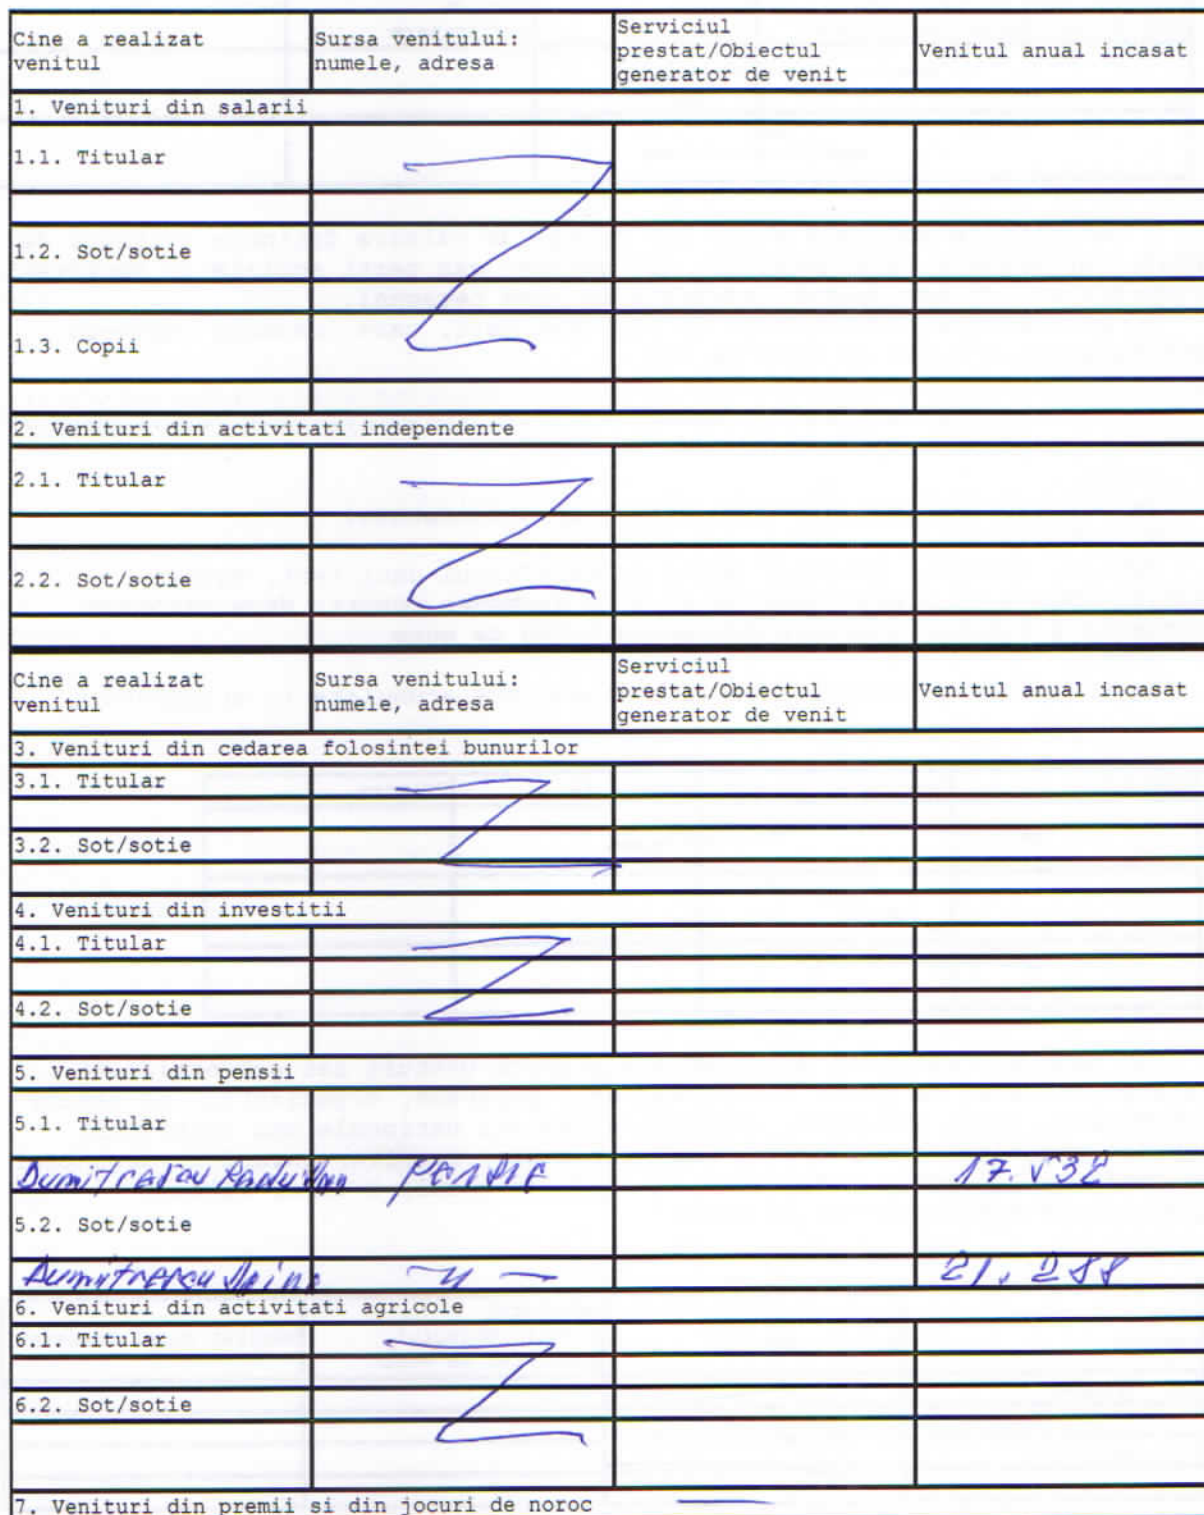 Cine a realizat venitul Sursa venitului: numele, adresa Serviciul prestat/Obiectul generator de venit Venitul anual incasat
1. Venituri din salarii
1.1. Titular
1.2. Sot/sotie
1.3. Copii
2. Venituri din activitati independente
2.1. Titular
2.2. Sot/sotie
Cine a realizat venitul Sursa venitului: numele, adresa Serviciul prestat/Obiectul generator de venit Venitul anual incasat
3. Venituri din cedarea folosintei bunurilor
3.1. Titular
3.2. Sot/sotie
4. Venituri din investitii
4.1. Titular
4.2. Sot/sotie
5. Venituri din pensii
5.1. Titular
Dumitrescu pensie
5.2. Sot/sotie
Dumitrescu
6. Venituri din activitati agricole
6.1. Titular
6.2. Sot/sotie
7. Venituri din premii si din jocuri de noroc